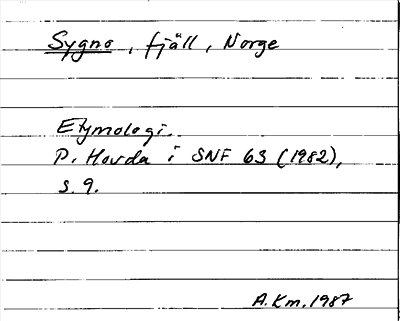 Sygno, fjäll, Norge
Etymologi.
P. Hovda i SNF 63 (1982),
s. 9.
A.Km. 1987